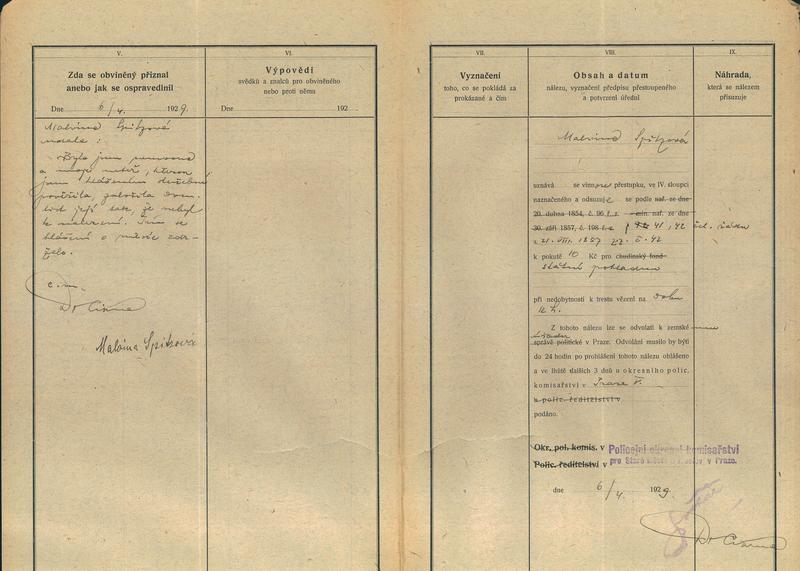 V.
Zda se obviněný přiznal
anebo jak se ospravedlnil
Dne 6/4. 1929.
Malvina Spitzová
udala:
Byla jsem
a moje neteř, kterou
jsem hlášením služebné
pověřila, založila dom.
list její tak, že nebyl
k nalezení. Tím se
hlášení o měsíc zdr-
želo.
c. m.
Dr
Malvina Spitzová
VI.
Výpovědi
svědků a znalců pro obviněného
nebo proti němu
Dne 192
VII.
Vyznačení
toho, co se pokládá za
prokázané a čím
VIII.
Obsah a datum
nálezu, vyznačení předpisu přestoupeného
a potvrzení úřední
Malvina Spitzová
uznává se vinnou přestupku, ve IV. sloupci
naznačeného a odsuzuje se podle nař. ze dne
20. dubna 1854, č. 96 ř. z. min. nař. ze dne
30. září 1857, č. 198 ř. z. § 41, 42 čel. řádu
z 1857
k pokutě 10 Kč pro chudinský fond
státní pokladnu
při nedobytnosti k trestu vězení na dobu
12 h.
Z tohoto nálezu lze se odvolati k zemské
úřadu
správě politické v Praze. Odvolání musilo by býti
do 24 hodin po prohlášení tohoto nálezu ohlášeno
a ve lhůtě dalších 3 dnů u okresního polic.
komisařství v Praze V.
u polic. ředitelství v
podáno.
Okr. pol. komis. v Policejní okresní komisařství
Polic. ředitelství v pro Staré město a Josefov v Praze.
dne 6/4. 1929.
Dr
IX.
Náhrada,
která se nálezem
přisuzuje